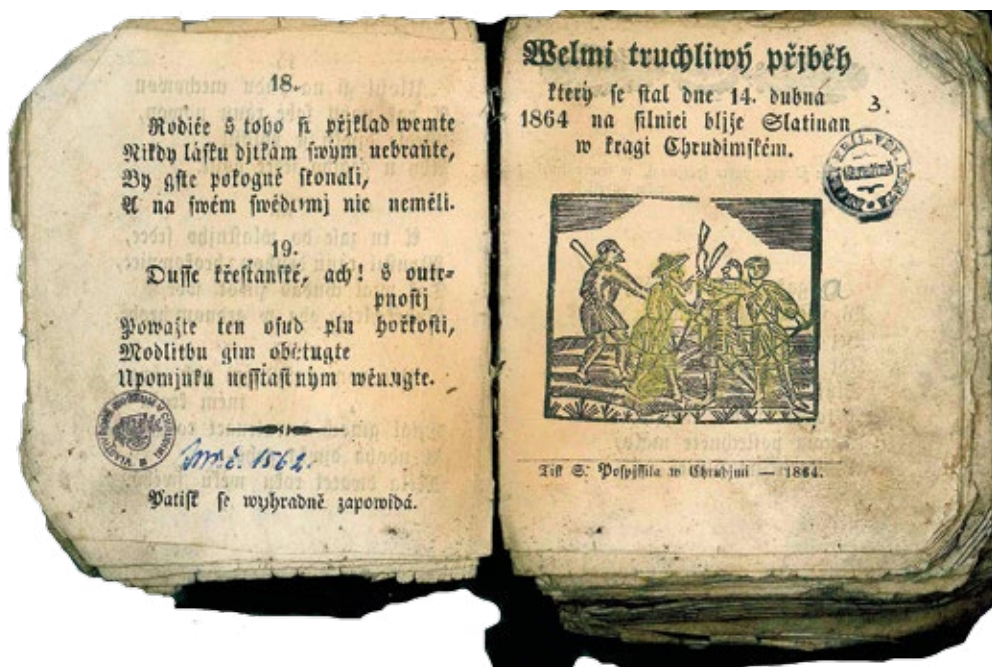 18.
Rodiče s toho si přjklad wemte
Nikdy lásku djtkám swým nebraňte,
By gste pokogně skonali,
A na swém swědomj nic neměli.
19.
Dusse křestanské, ach! s outr-
pnostj
Powažte ten osud pln hořkosti,
Modlitbu gim obětugte
Upomjnku nesstastným wěnugte.
Inv. č. 1562.
Patisk se wyhradně zapowidá.
Welmi truchliwý přjběh
který se stal dne 14. dubna
1864 na silnici bljže Slatinan
w kragi Chrudimském.
3.
Tisk S. Pospjssila w Chrudjmi — 1864.